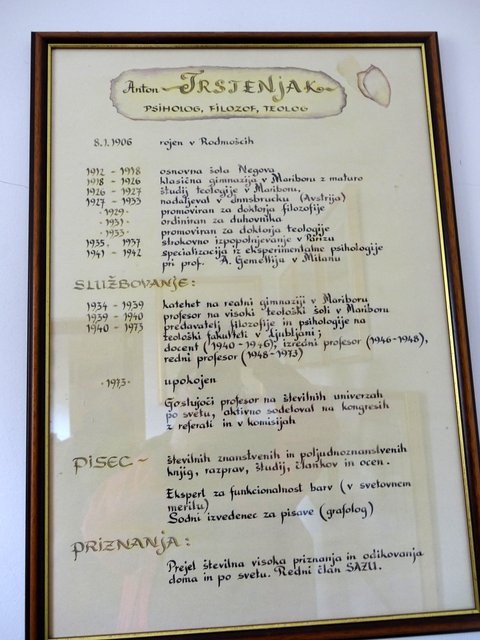 Anton TRSTENJAK
PSIHOLOG, FILOZOF, TEOLOG
8.1.1906 rojen v Rodmošcih
1912 - 1918 osnovna šola Negova
1918 - 1926 klasična gimnazija v Mariboru z maturo
1926 - 1927 študij teologije v Mariboru,
1927 - 1933 nadaljeval v Innsbrucku (Avstrija)
·1929· promoviran za doktorja filozofije
·1931· ordiniran za duhovnika
·1933· promoviran za doktorja teologije
1935. 1937 strokovno izpopolnjevanje v Parizu
1941 - 1942 specializacija iz eksperimentalne psihologije
pri prof. A. Gemellija v Milanu
SLUŽBOVANJE:
1934 - 1939 katehet na realni gimnaziji v Mariboru
1939 - 1940 profesor na visoki teološki šoli v Mariboru
1940 - 1973 predavatelj filozofije in psihologije na
teološki fakulteti v Ljubljani;
docent (1940-1946); izredni profesor (1946-1948),
redni profesor (1948-1973)
·1973· upokojen
Gostujoči profesor na številnih univerzah
po svetu, aktivno sodeloval na kongresih
z referati in v komisijah
PISEC - številnih znanstvenih in poljudnoznanstvenih
knjig, razprav, študij, člankov in ocen.
Ekspert za funkcionalnost barv (v svetovnem
merilu)
Sodni izvedenec za pisave (grafolog)
PRIZNANJA:
Prejel številna visoka priznanja in odlikovanja
doma in po svetu. Redni član SAZU.